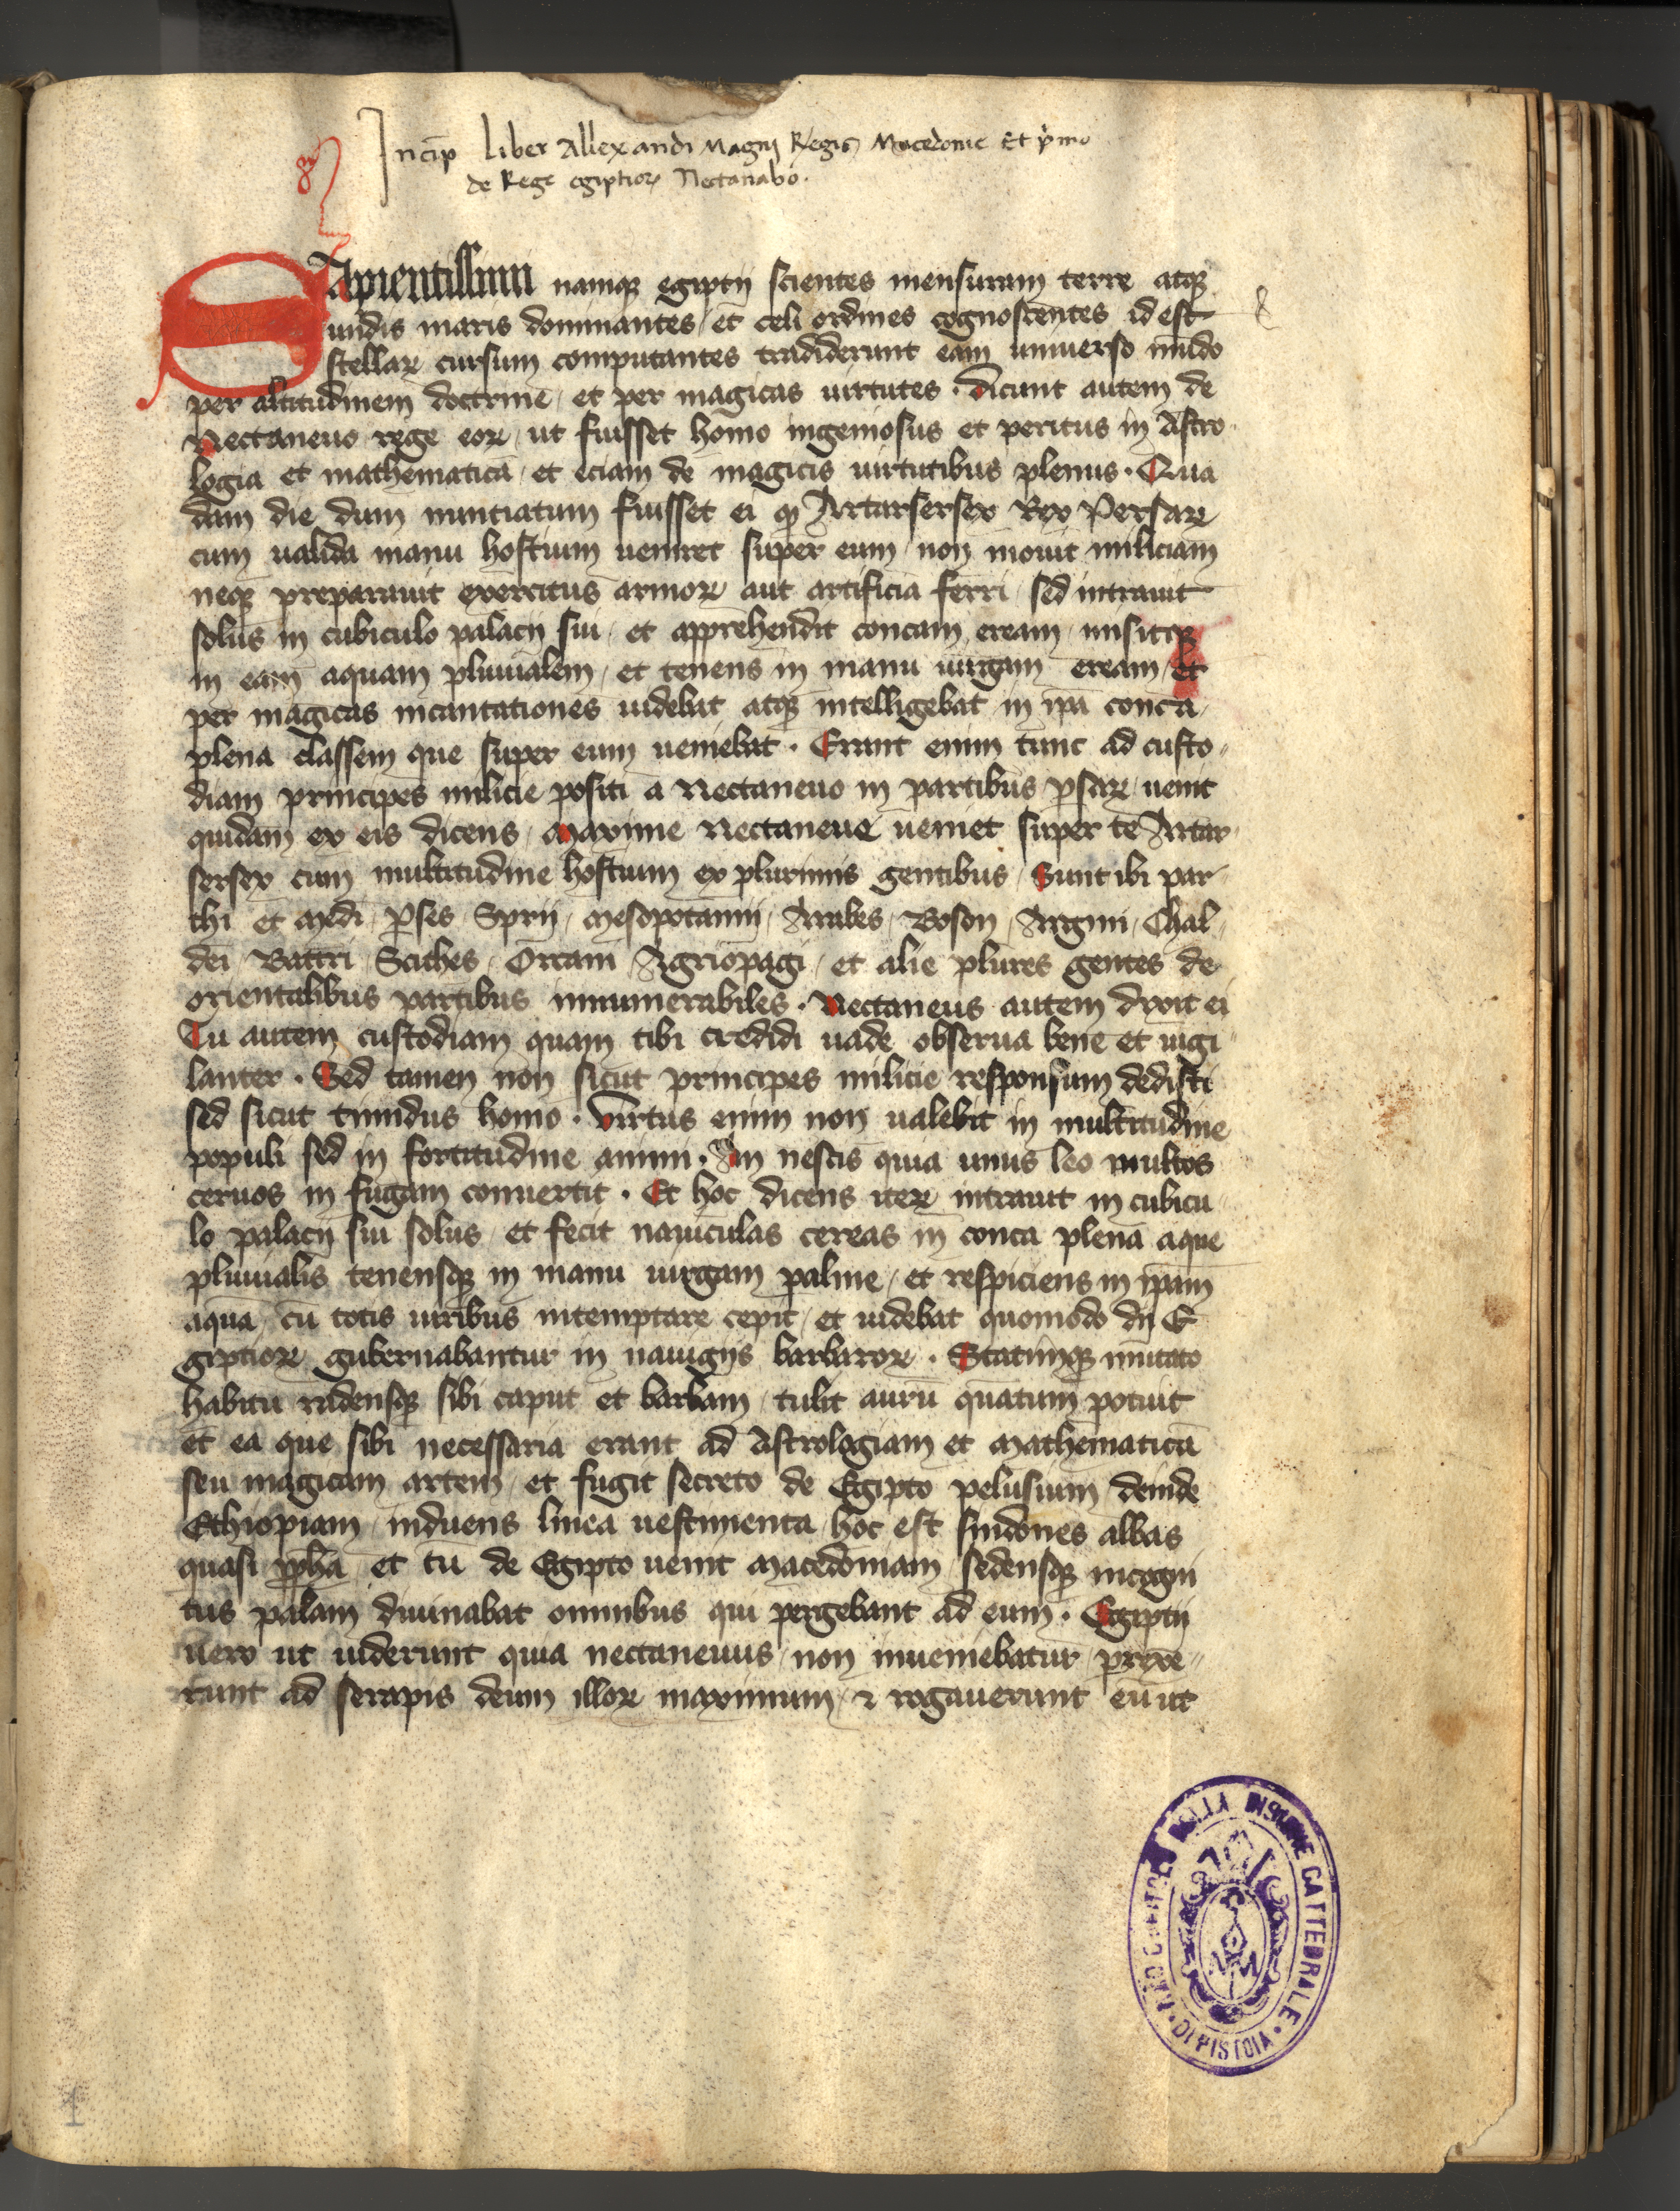 Incip̄ Liber Allexandi Magni Regis Macedonie Et p̲i̲mo
de Rege egiptioꝝ Nectanabo.
SApientissimi namqꝫ egiptij scientes mensuram terre atqꝫ
undis maris dominantes / et celi ordines cognoscentes id est
stellaꝝ cursum computantes tradiderunt eam uniuerso mūdo
per altitudinem doctrine / et per magicas uirtutes · dicunt autem de
Nectaneuo rege eoꝝ / ut fuisset homo ingeniosus et peritus in Astro
logia et mathematicā / et eciam de magicis uirtutibus plenus · Qua
dam die dum nunciatum fuisset ei ꝙ Artarserses Rex Persaꝝ
cum ualida manu hostium ueniret super eum / non mouit miliciam
neqꝫ preparauit exercitus armoꝝ aut artificia ferri / sed intrauit
solus in cubiculo palacij sui / et apprehendit concam eream / misitqꝫ
in eam aquam pluuialem / et tenens in manu uirgam eream / et
per magicas incantationes uidebat atqꝫ intelligebat in ip̄a conca
plena classem que super eum ueniebat · Erant enim tunc ad custo
diam principes milicie positi a Nectaneuo in partibus ꝑsaꝝ / uenit
quidam ex eis dicens / Maxime Nectaneue ueniet super te Artar
serses cum multitudine hostium ex plurimis gentibus / Sunt ibi par
thi et Medi / ꝑses / Syrij / Mesopotamij / Arabes / Bosori / Argini / Chal
dei / Battri / Scithes / Orcani / Agriopagi / et alie plures gentes de
orientalibus partibus innumerabiles · Nectaneus autem dixit ei
Tu autem custodiam quam tibi credidi uade obserua bene et uigi
lanter · Sed tamen non sicut principes milicie responsum dedisti
sed sicut timidus homo · Virtus enim non ualebit in multitudine
populi sed in fortitudine animi · An nescis quia unus leo multos
ceruos in fugam conuertit · Et hoc dicens iteꝝ intrauit in cubicu
lo palacij sui solus / et fecit nauiculas cereas in conca plena aque
pluuialis tenensqꝫ in manu uirgam palme / et respiciens in ip̄am
aquā / cū totis uiribus intemptare cepit / et uidebat quomodo dij E
giptioꝝ gubernabantur in nauigijs barbaroꝝ · Statimqꝫ mutato
habitu radensqꝫ sibi caput et barbam / tulit aurū quātum potuit
et ea que sibi necessaria erant ad Astrologiam et Mathematicā
seu magicam artem / et fugit secreto de Egipto pelusium / deinde
Ethiopiam / induens linea uestimenta / hoc est sindones albas
quasi ꝓph̄a / et tū de Egipto uenit Macedoniam / sedensqꝫ incogni
tus palam diuinabat omnibus qui pergebant ad eum · Egiptij
uero ut uiderunt quia nectaneuus non inueniebatur / prexe
runt ad serapis deum illoꝝ maximum / ⁊ rogauerunt eū ut
DELLA INSIGNE CATTEDRALE · DI PISTOIA ·
1